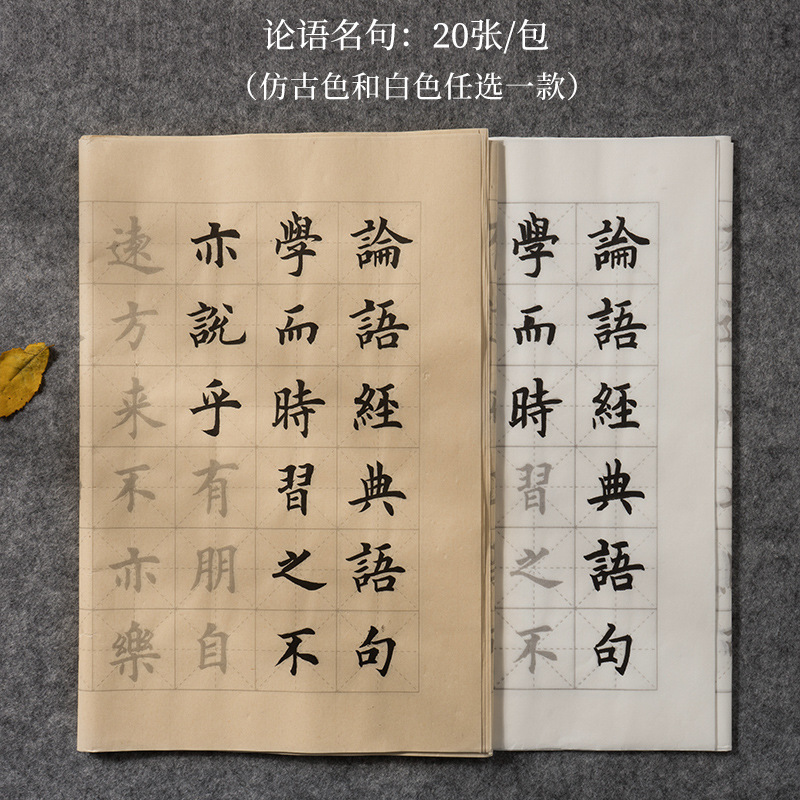 论语名句：20张/包
（仿古色和白色任选一款）
論語經典語句
學而時習之不
亦說乎有朋自
遠方来不亦樂
論語經典語句
學而時習之不